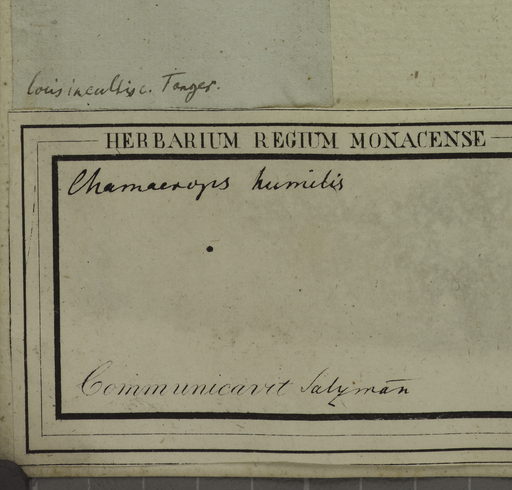 locis incultis c. Tanger.
HERBARIUM REGIUM MONACENSE
Chamaerops humilis
Communicavit Salzmañ